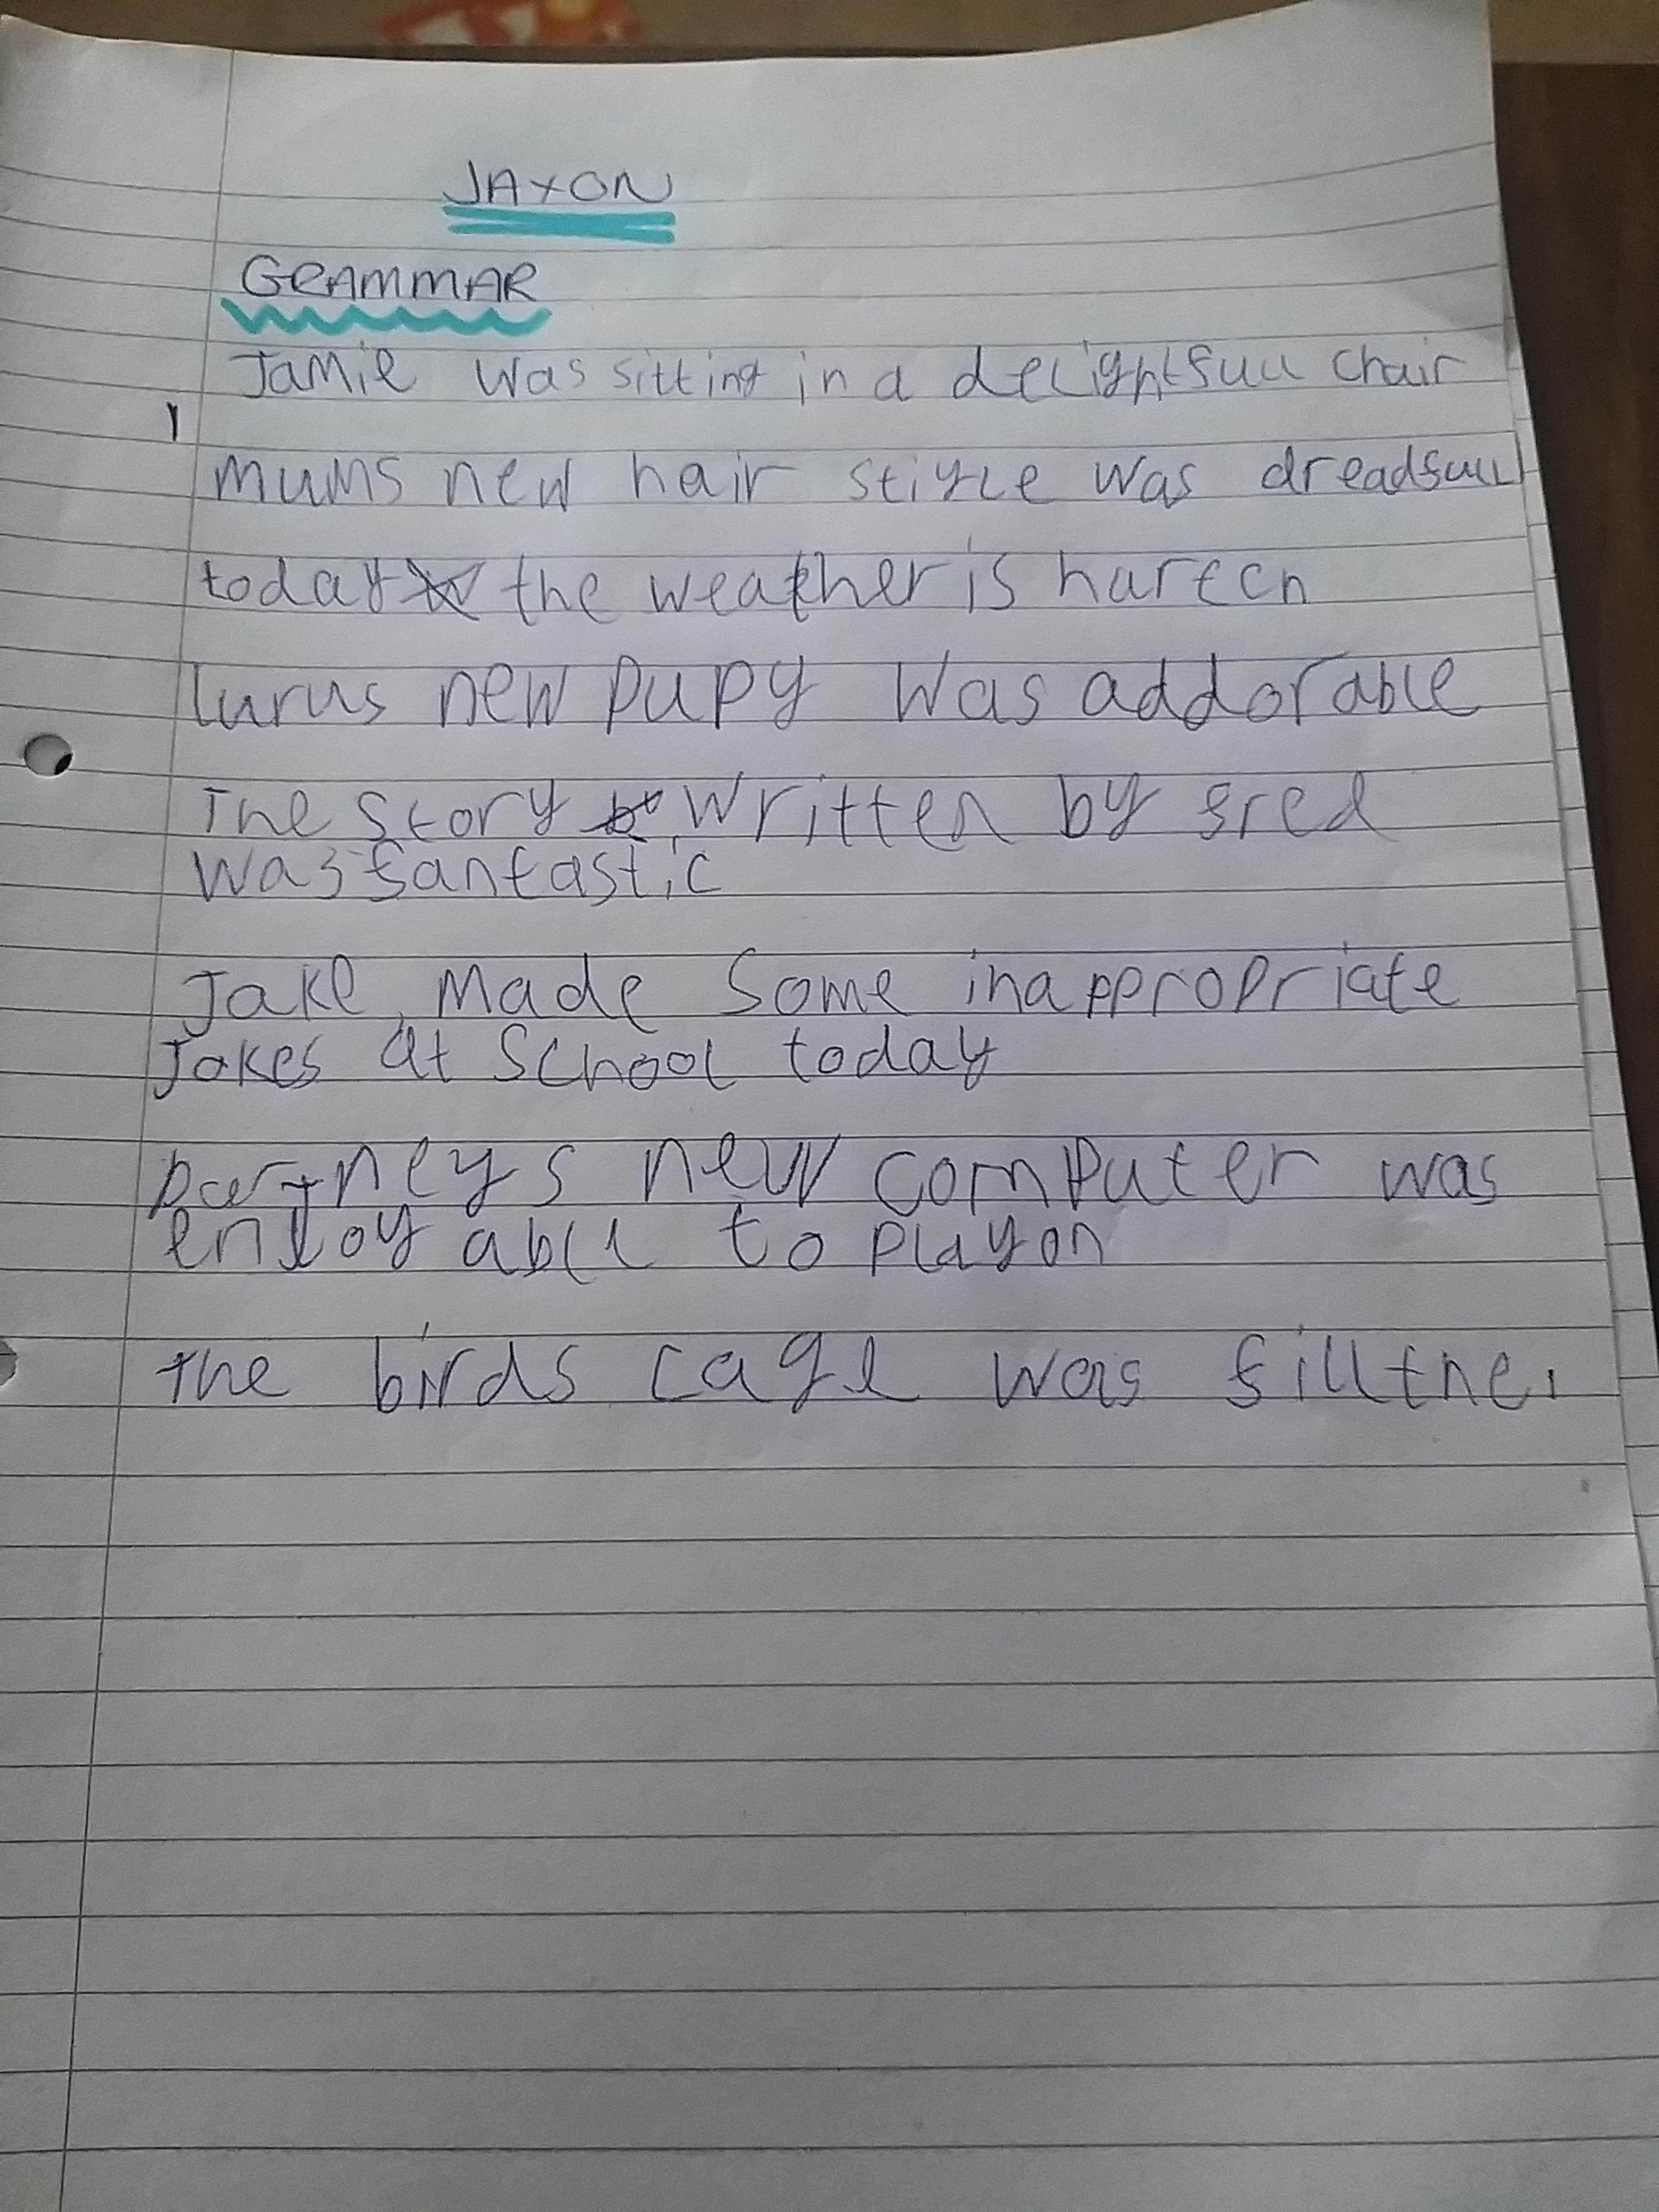 JAXON
GRAMMAR
Jamie was sitting in a delightfull chair
1
mums new hair stiyle was dreadfull
today the weather is
lurus new pupy was addorable
The story written by fred
was fantastic
Jake made some inappropriate
Jokes at School today
new computer was
enjoy able to play on
the birds cage was fillthe